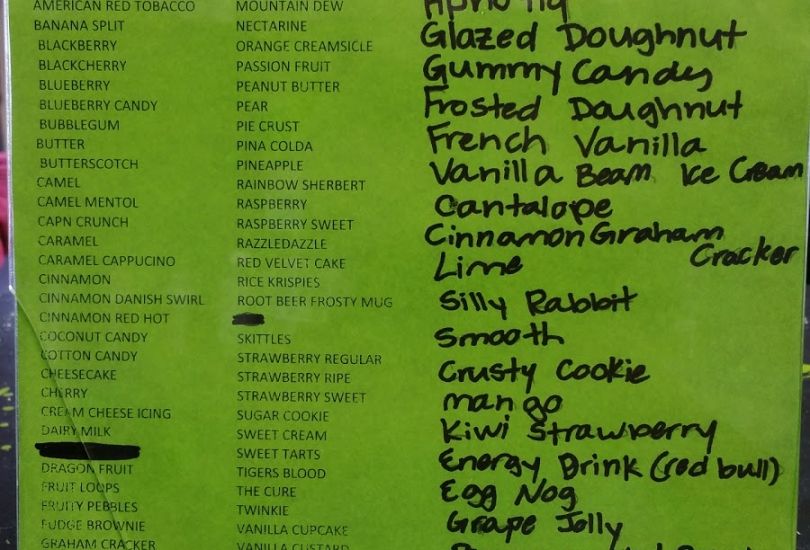 AMERICAN RED TOBACCO
BANANA SPLIT
BLACKBERRY
BLACKCHERRY
BLUEBERRY
BLUEBERRY CANDY
BUBBLEGUM
BUTTER
BUTTERSCOTCH
CAMEL
CAMEL MENTOL
CAPN CRUNCH
CARAMEL
CARAMEL CAPPUCINO
CINNAMON
CINNAMON DANISH SWIRL
CINNAMON RED HOT
COCONUT CANDY
COTTON CANDY
CHEESECAKE
CHERRY
CREAM CHEESE ICING
DAIRY MILK
DRAGON FRUIT
FRUIT LOOPS
FRUITY PEBBLES
FUDGE BROWNIE
GRAHAM CRACKER
MOUNTAIN DEW
NECTARINE
ORANGE CREAMSICLE
PASSION FRUIT
PEANUT BUTTER
PEAR
PIE CRUST
PINA COLDA
PINEAPPLE
RAINBOW SHERBERT
RASPBERRY
RASPBERRY SWEET
RAZZLEDAZZLE
RED VELVET CAKE
RICE KRISPIES
ROOT BEER FROSTY MUG
SKITTLES
STRAWBERRY REGULAR
STRAWBERRY RIPE
STRAWBERRY SWEET
SUGAR COOKIE
SWEET CREAM
SWEET TARTS
TIGERS BLOOD
THE CURE
TWINKIE
VANILLA CUPCAKE
VANILLA CUSTARD
Glazed Doughnut
Gummy Candy
Frosted Doughnut
French Vanilla
Vanilla Beam Ice Cream
Cantalope
Cinnamon Graham
Cracker
Lime
Silly Rabbit
Smooth
Crusty Cookie
mango
Kiwi Strawberry
Energy Drink (red bull)
Egg Nog
Grape Jelly